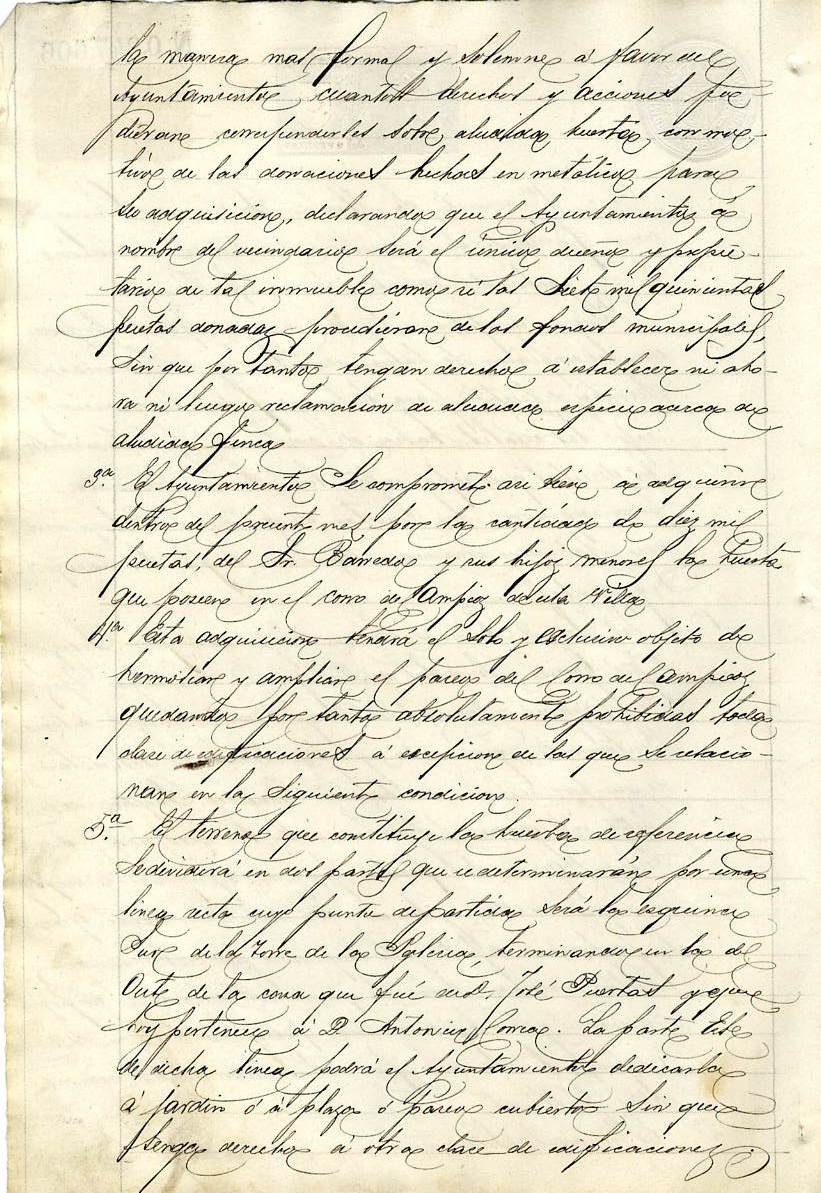 la manera mas formal y solemne á favor del
Ayuntamiento cuantos derechos y acciones pu
dieran corresponderles sobre aludida huerta, con mo-
tivo de las donaciones hechas en metálico para
su adquisicion, declarando que el Ayuntamiento á
nombre del vecindario será el único dueño y propie-
tario de tal inmueble como si las siete mil quinientas
pesetas donadas procedieran de los fondos municipales,
sin que por tanto tengan derecho á establecer ni aho-
ra ni luego reclamación de aludida especie acerca de
aludida finca
3ª. El Ayuntamiento se compromete asi bien á adquirir
dentro del presente mes por la cantidad de diez mil
pesetas, del Sr. Barreda y sus hijos menores la huerta
que poseen en el corro de Campios de esta Villa
4ª. Esta adquisicion tendrá el solo y esclusivo objeto de
hermosear y ampliar el paseo del Corro de Campios,
quedando por tanto absolutamente prohibidas toda
clase de edificaciones á escepcion de las que se relacio-
nan en la siguiente condicion.
5ª. El terreno que constituye la huerta de referencia
se dividirá en dos partes que se determinarán por una
linea recta cuyo punto de partida será la esquina
Sur de la Torre de la Iglesia, terminando en la del
Oeste de la casa que fué de D. José Puertas y que
hoy pertenece á D. Antonio Correa. La parte Este
de dicha linea podrá el Ayuntamiento dedicarla
á jardin ó á plaza ó paseo cubierto sin que
tenga derecho á otra clase de edificaciones